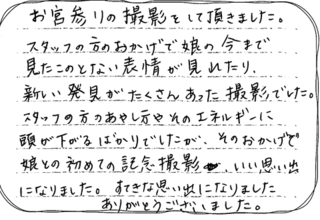 お宮参りの撮影をして頂きました。
スタッフの方のおかげで娘の今まで
見たことのない表情が見れたり、
新しい発見がたくさんあった撮影でした。
スタッフの方のあやし方やそのエネルギーに
頭が下がるばかりでしたが、そのおかげで
娘との初めての記念撮影 いい思い出
になりました。すてきな思い出になりました
ありがとうございました。